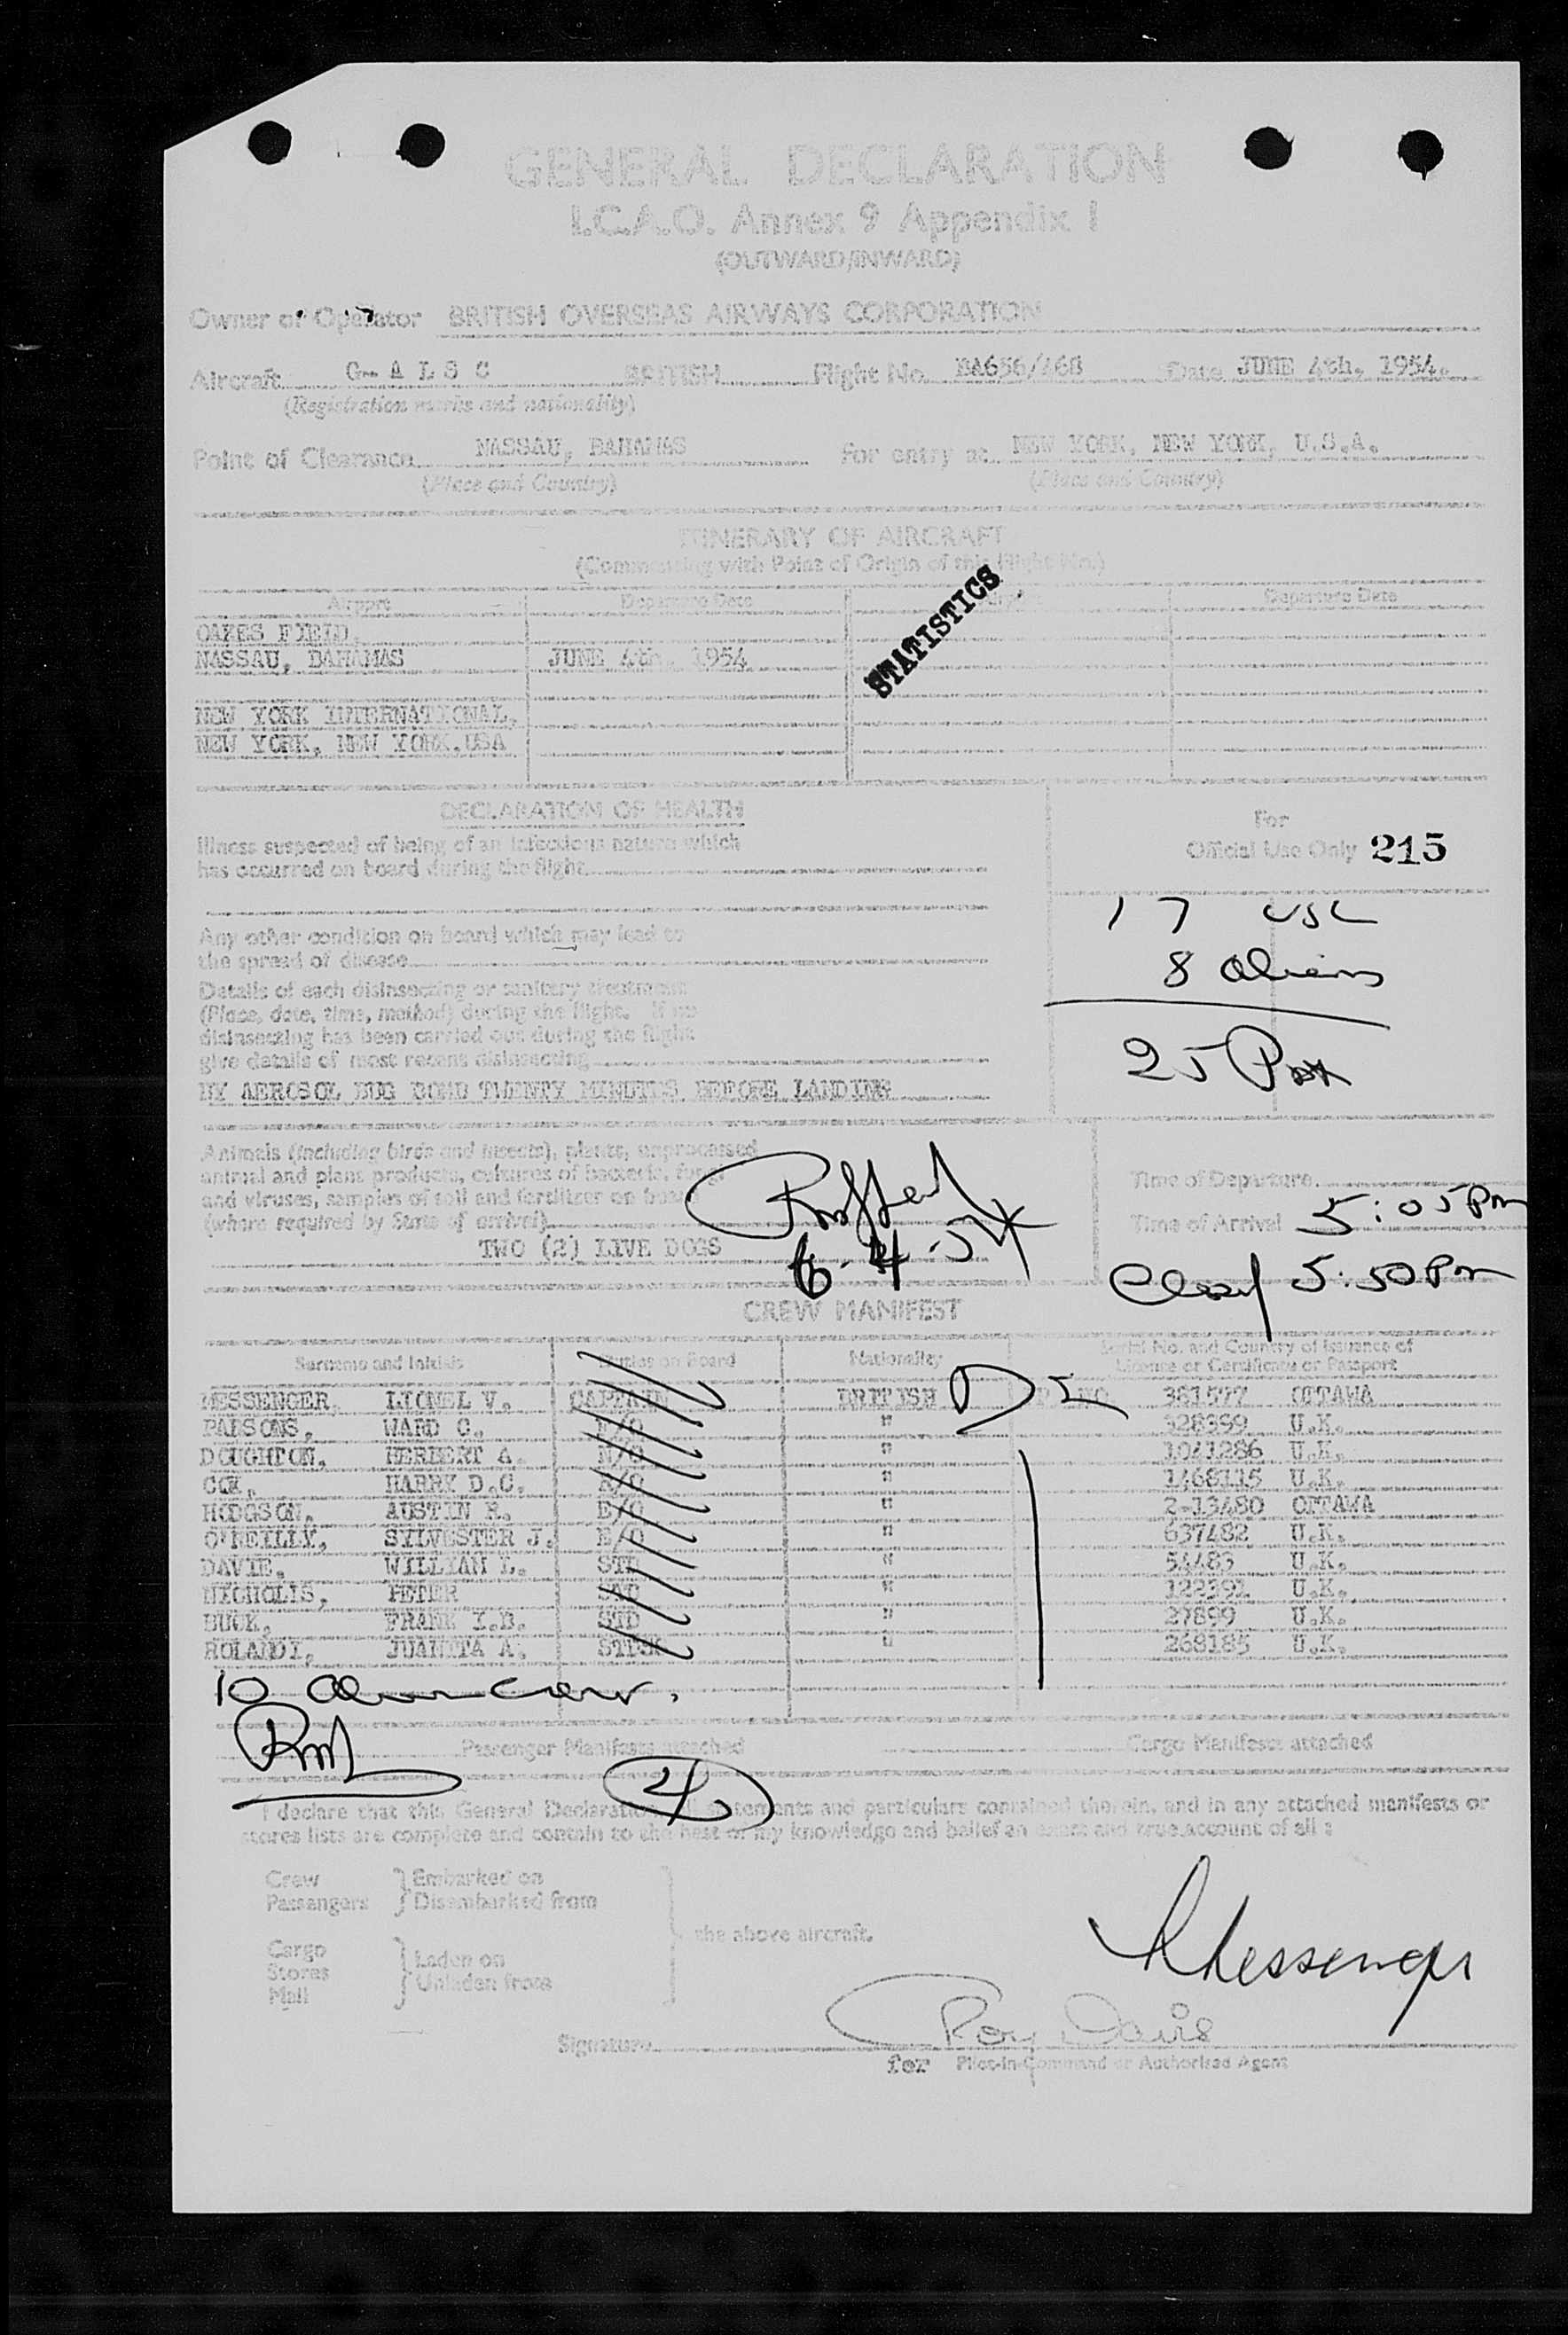 GENERAL DECLARATION
I.C.A.O. Annex 9 Appendix I
(OUTWARD/INWARD)
Owner or Operator BRITISH OVERSEAS AIRWAYS CORPORATION
Aircraft G- A L S C BRITISH Flight No. BA656/468 Date JUNE 4th, 1954.
(Registration marks and nationality)
Point of Clearance NASSAU, BAHAMAS For entry at NEW YORK, NEW YORK, U.S.A.
(Place and Country) (Place and Country)
ITINERARY OF AIRCRAFT
(Commencing with Point of Origin of this Flight No.)
Airport Departure Date Departure Date
STATISTICS
OAKES FIELD,
NASSAU, BAHAMAS JUNE 4th, 1954
NEW YORK INTERNATIONAL,
NEW YORK, NEW YORK.USA
DECLARATION OF HEALTH
Illness suspected of being of an infectious nature which
has occurred on board during the flight
Any other condition on board which may lead to
the spread of disease
Details of each disinsecting or sanitary treatment
(Place, date, time, method) during the flight. If no
disinsecting has been carried out during the flight
give details of most recent disinsecting
BY AEROSOL BUG BOMB TWENTY MINUTES BEFORE LANDING
For
Official Use Only 215
17 USC
8 Aliens
25 Pax
Animals (including birds and insects), plants, unprocessed
animal and plant products, cultures of bacteria, fungi
and viruses, samples of soil and fertilizer on board
(where required by State of arrival)
TWO (2) LIVE DOGS
6-4-54
Time of Departure
Time of Arrival 5:05 Pm
Clear 5:50 Pm
CREW MANIFEST
Surname and Initials Duties on Board Nationality Serial No. and Country of Issuance of
License or Certificate or Passport
MESSENGER, LIONEL V. CAPTAIN BRITISH 381577 OTTAWA
PARSONS, WARD C. F/O " 328399 U.K.
DOUGHTON, HERBERT A. N/O " 1041286 U.K.
COX, HARRY D.C. R/O " 1468115 U.K.
HODGSON, AUSTIN R. E/O " 2-13480 OTTAWA
O'REILLY, SYLVESTER J. E/O " 637482 U.K.
DAVIE, WILLIAN L. STD " 54483 U.K.
NICHOLLS, PETER STD " 122391 U.K.
BUCK, FRANK I.B. STD " 27899 U.K.
ROLANDI, JUANITA A. " 268185 U.K.
10 Alien crew.
Passenger Manifests attached Cargo Manifests attached
I declare that this General Declaration, all statements and particulars contained therein, and in any attached manifests or
stores lists are complete and contain to the best of my knowledge and belief an exact and true account of all :
Crew Embarked on
Passengers Disembarked from
the above aircraft.
Cargo Laden on
Stores
Mail Unladen from
Messenger
Signature Roy Davis
for Pilot-in-Command or Authorised Agent